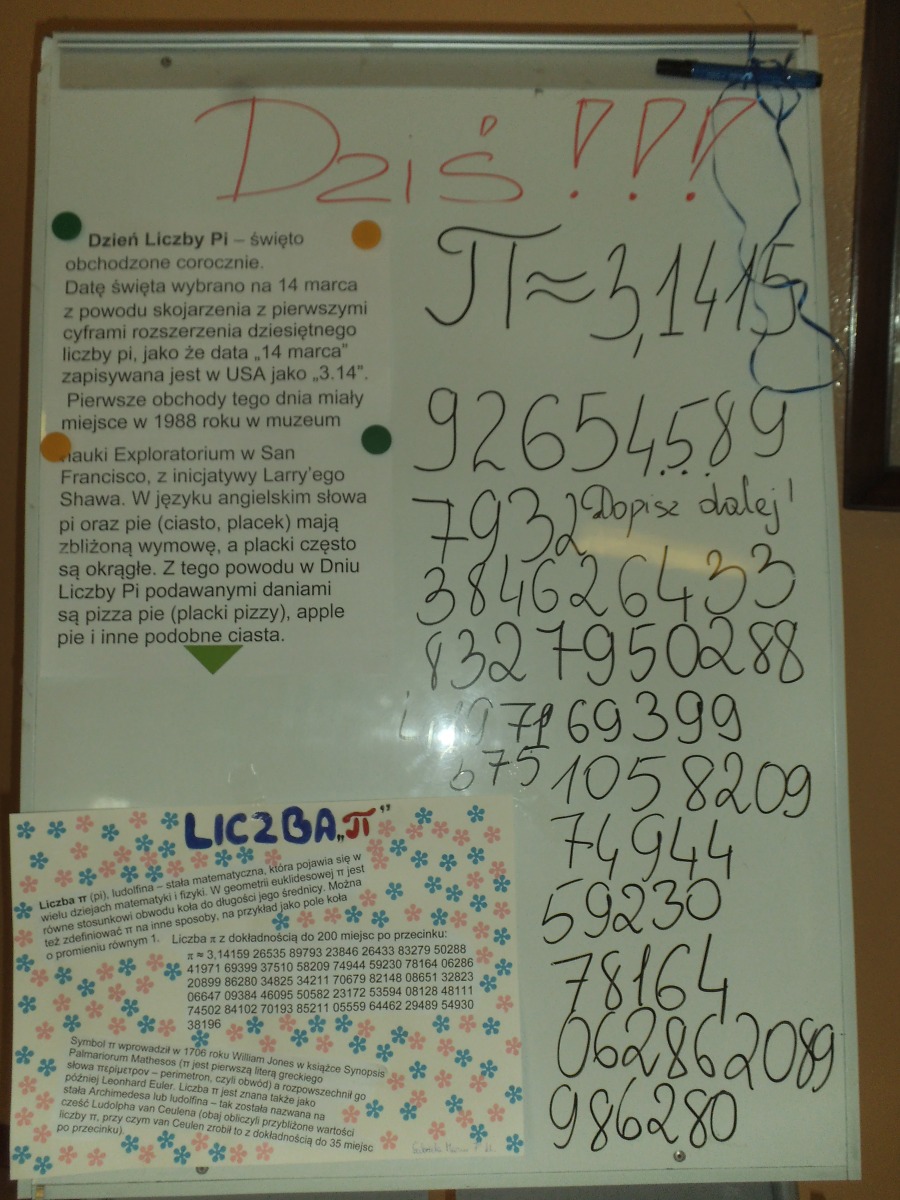 Dziś!!!
Dzień Liczby Pi – święto
obchodzone corocznie.
Datę święta wybrano na 14 marca
z powodu skojarzenia z pierwszymi
cyframi rozszerzenia dziesiętnego
liczby pi, jako że data „14 marca”
zapisywana jest w USA jako „3.14”.
Pierwsze obchody tego dnia miały
miejsce w 1988 roku w muzeum
nauki Exploratorium w San
Francisco, z inicjatywy Larry'ego
Shawa. W języku angielskim słowa
pi oraz pie (ciasto, placek) mają
zbliżoną wymowę, a placki często
są okrągłe. Z tego powodu w Dniu
Liczby Pi podawanymi daniami
są pizza pie (placki pizzy), apple
pie i inne podobne ciasta.
π≈3,1415
92654589
...
7932 Dopisz dalej!
384626433
8327950288
69399
675 1058209
74944
59230
78164
062862089
986280
LICZBA „π”
Liczba π (pi), ludolfina – stała matematyczna, która pojawia się w
wielu dziejach matematyki i fizyki. W geometrii euklidesowej π jest
równe stosunkowi obwodu koła do długości jego średnicy. Można
też zdefiniować π na inne sposoby, na przykład jako pole koła
o promieniu równym 1.
Liczba π z dokładnością do 200 miejsc po przecinku:
π ≈ 3,14159 26535 89793 23846 26433 83279 50288
41971 69399 37510 58209 74944 59230 78164 06286
20899 86280 34825 34211 70679 82148 08651 32823
06647 09384 46095 50582 23172 53594 08128 48111
74502 84102 70193 85211 05559 64462 29489 54930
38196
Symbol π wprowadził w 1706 roku William Jones w książce Synopsis
Palmariorum Mathesos (π jest pierwszą literą greckiego
słowa περίμετρον – perimetron, czyli obwód) a rozpowszechnił go
później Leonhard Euler. Liczba π jest znana także jako
stała Archimedesa lub ludolfina – tak została nazwana na
cześć Ludolpha van Ceulena (obaj obliczyli przybliżone wartości
liczby π, przy czym van Ceulen zrobił to z dokładnością do 35 miejsc
po przecinku).